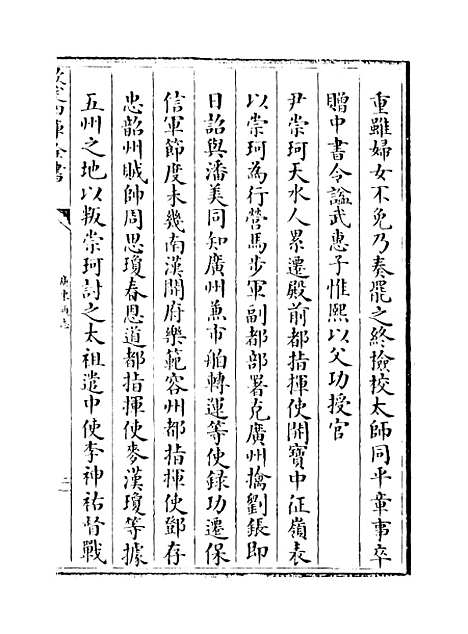 重雖婦女不免乃奏罷之終撿校太師同平章事卒
贈中書令諡武惠子惟熙以父功授官
尹崇珂天水人累遷殿前都指揮使開寶中征嶺表
以崇珂為行營馬步軍副都部署克廣州擒劉鋹即
日詔與潘美同知廣州兼市舶轉運等使録功遷保
信軍節度未幾南漢開府樂範容州都指揮使鄧存
忠韶州賊帥周思瓊春恩道都指揮使麥漢瓊等據
五州之地以叛崇珂討之太祖遣中使李神祐督戰
欽定四庫全書
廣東通志